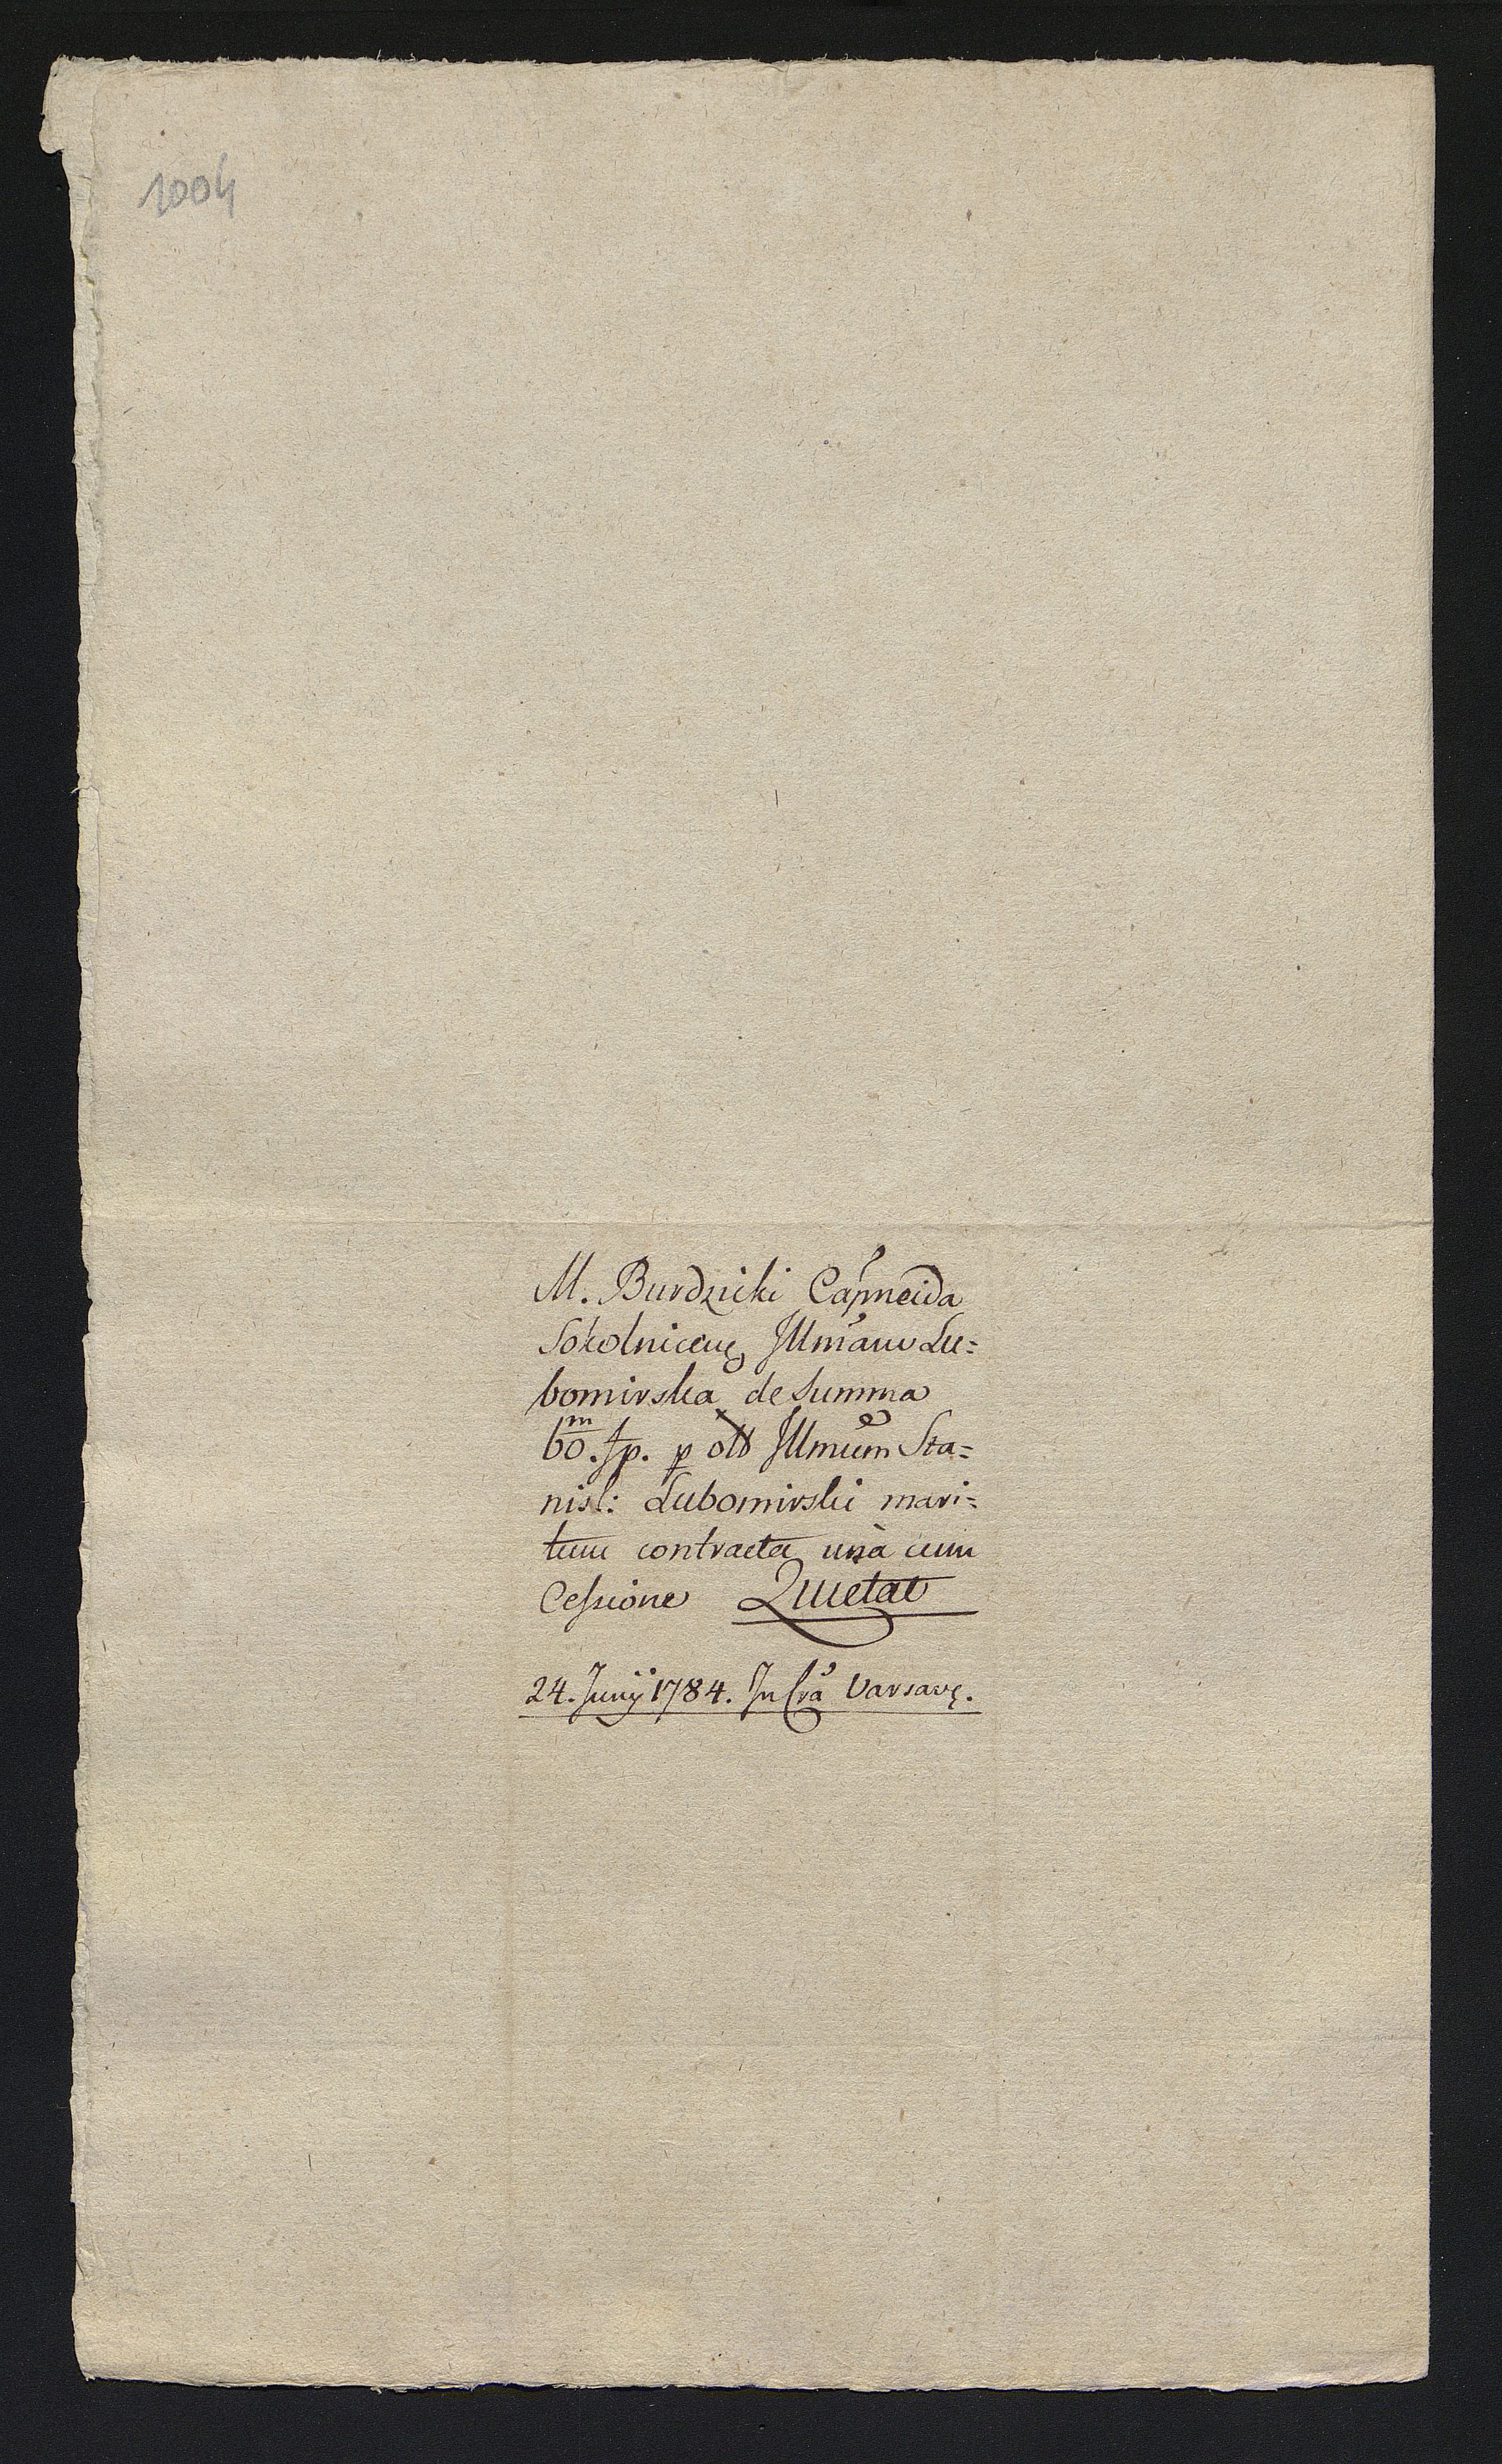 1004
M. Burdzicki Capneida
Sokolniceñ Illmam Lu=
bomirska de Summa
60.m fp. p olb Illmum Sta=
nisl: Lubomirski mari=
tum contracta unà cum
Cessione Quietat
24. Junÿ 1784. In Cra Varsavę.